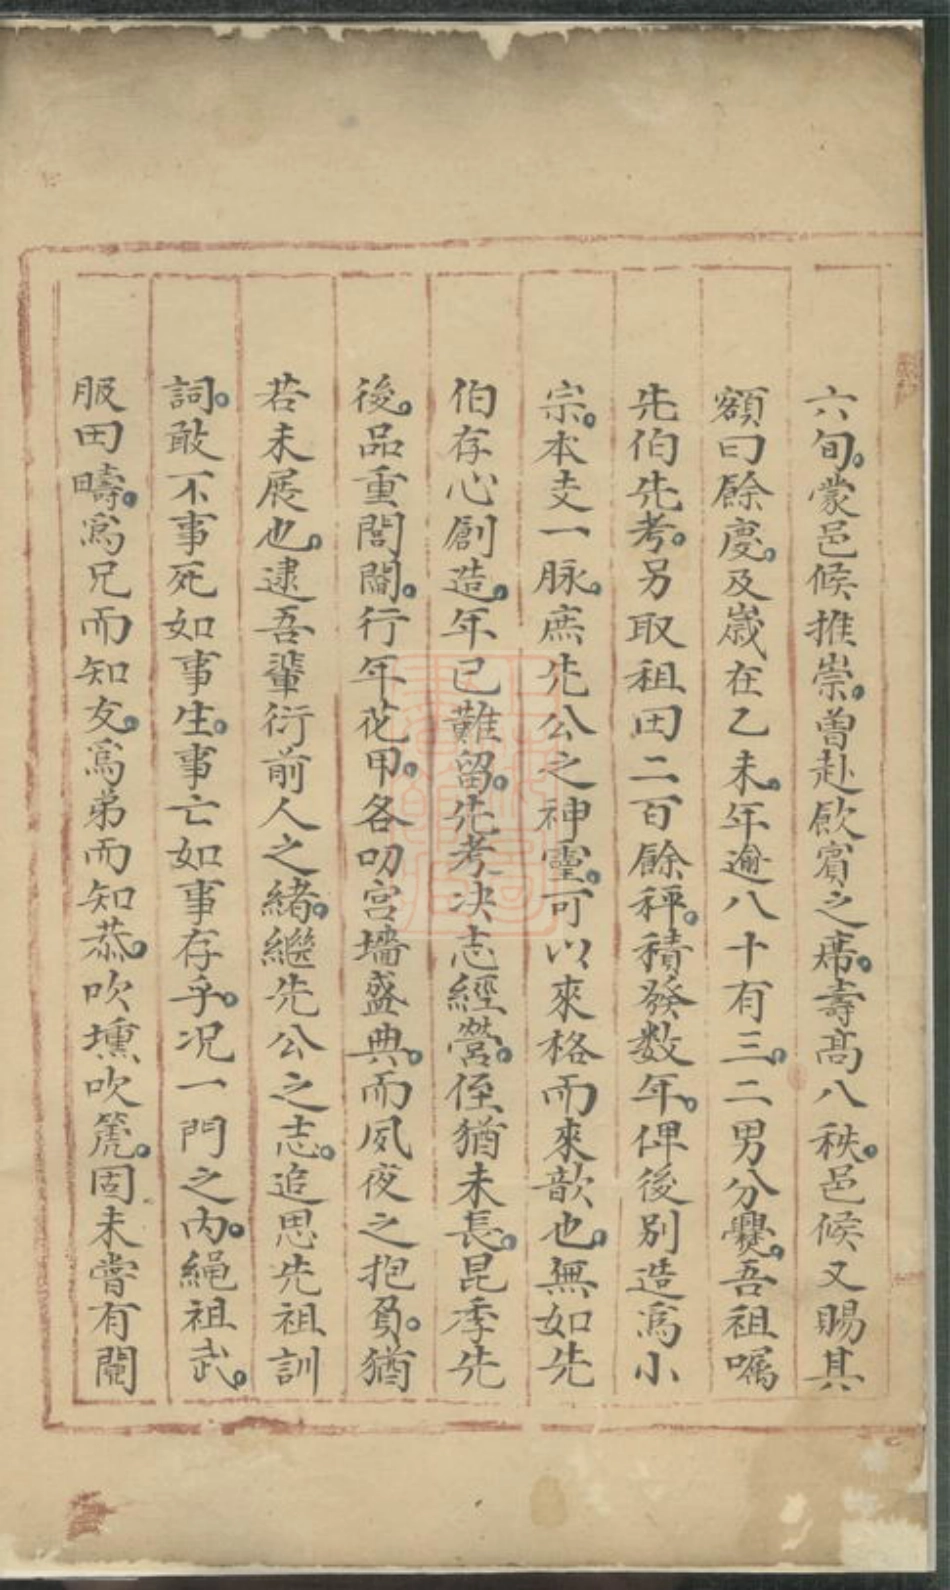 六旬。蒙邑候推崇。曾赴飲賓之席。壽高八秩。邑候又賜其
額曰餘慶。及歲在乙未。年逾八十有三。二男分爨。吾祖囑
先伯先考。另取租田二百餘秤。積發数年。俾後別造為小
宗。本支一脉。庶先公之神靈。可以來格而來歆也。無如先
伯存心創造。年已難留。先考决志經營。侄猶未長。昆季先
後。品重閭閻。行年花甲。各叨宮墻盛典。而夙夜之抱負。猶
若未展也。逮吾輩衍前人之緒。繼先公之志。追思先祖訓
詞。敢不事死如事生。事亡如事存乎。况一門之內。繩祖武。
服田疇。為兄而知友。為弟而知恭。吹壎吹篪。固未嘗有鬩